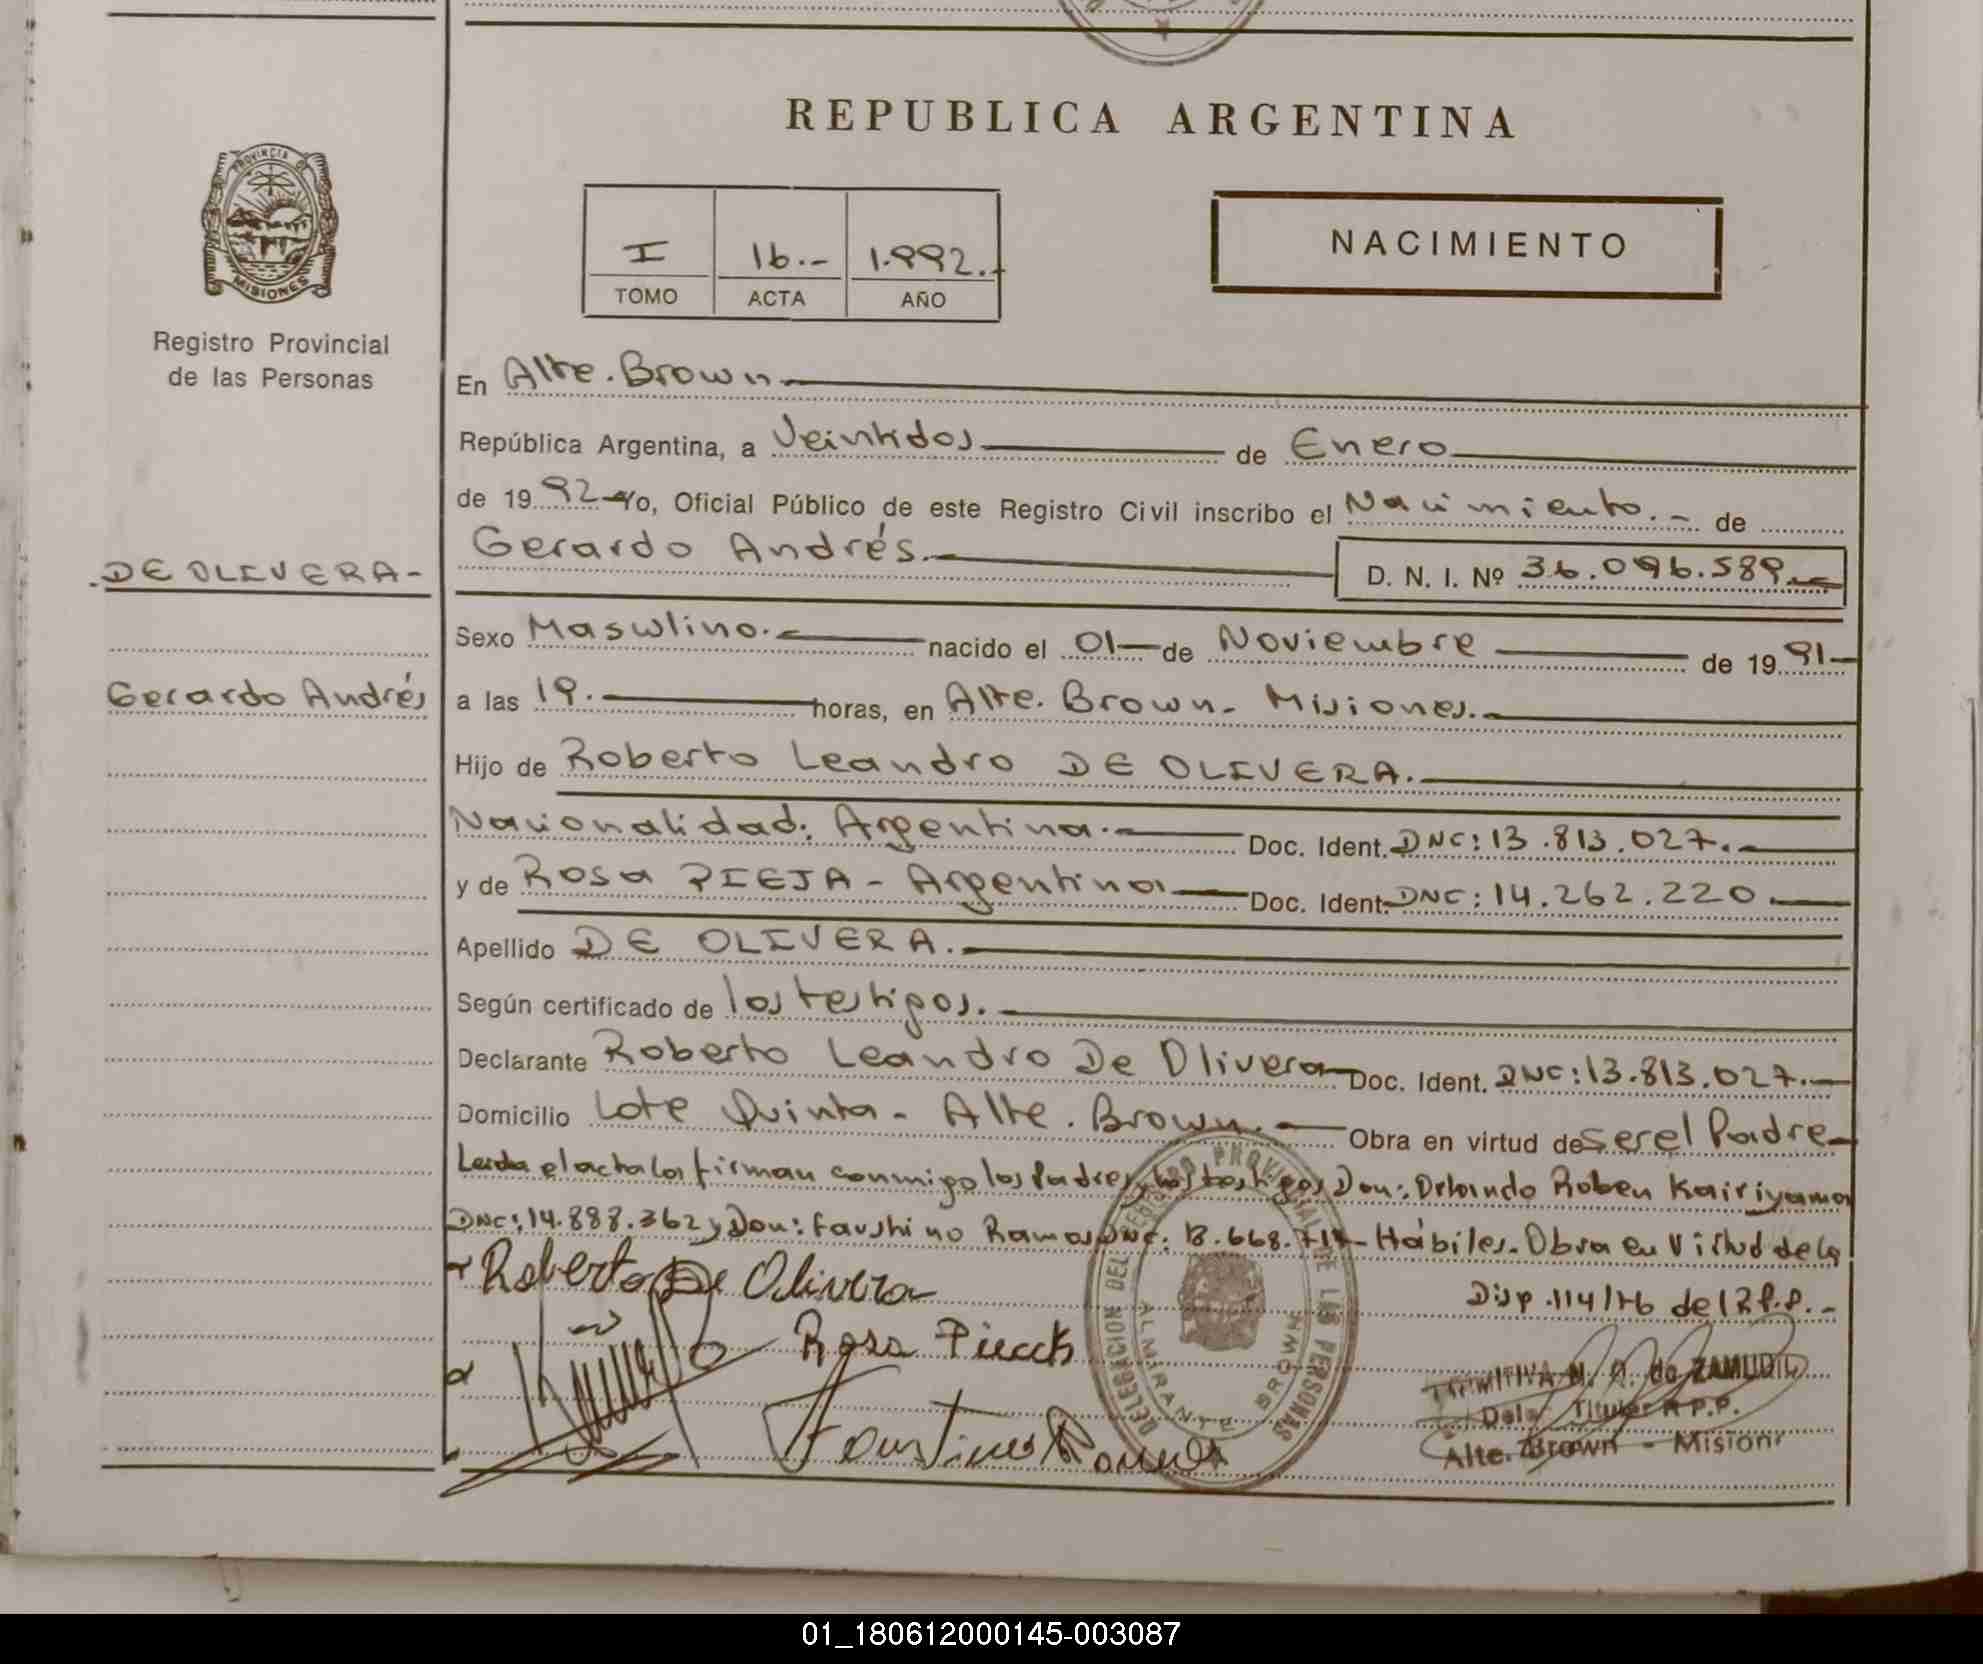 REPUBLICA ARGENTINA
PROVINCIA DE
MISIONES
Registro Provincial
de las Personas
I 16.- 1.992.-
TOMO ACTA AÑO
NACIMIENTO
En Alte. Brown.
República Argentina, a Veintidos de Enero
de 1992 Yo, Oficial Público de este Registro Civil inscribo el Nacimiento.- de
Gerardo Andrés.- D. N. I. Nº 36.096.589.-
DE OLIVERA-
Gerardo Andrés
Sexo Masculino.- nacido el 01 de Noviembre de 1991-
a las 19. horas, en Alte. Brown- Misiones.-
Hijo de Roberto Leandro DE OLIVERA.
Nacionalidad: Argentina.- Doc. Ident. DNI: 13.813.027.-
y de Rosa PIEJA- Argentina Doc. Ident. DNI: 14.262.220.-
Apellido DE OLIVERA.
Según certificado de los testigos.
Declarante Roberto Leandro De Olivera Doc. Ident. DNI: 13.813.027.-
Domicilio Lote Quinta- Alte. Brown.- Obra en virtud de ser el Padre-
Leida el acta la firman conmigo los Padres y los testigos Don: Orlando Ruben Kairiyama
DNI: 14.888.362 y Don: Faustino Ramos DNI: Hábiles. Obra en Virtud de la
Disp. 114/76 del R.P.P.-
Roberto De Olivera
Rosa
Faustino Ramos
DELEGACION DEL REGISTRO PROVINCIAL DE LAS PERSONAS
ALMIRANTE BROWN
PRIMITIVA N. A. de ZAMUDIO
Deleg. Titular R.P.P.
Alte. Brown - Misiones
01_180612000145-003087